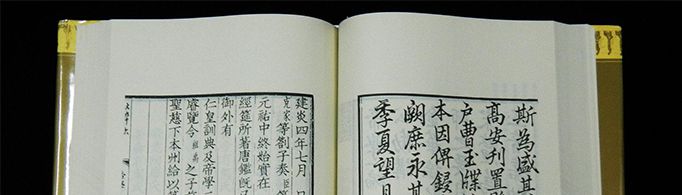 斯為盛其
高安利置
戶曹玉牒
本因俾鋟
闕庶永其
季夏望
建炎四年七月
等劄子奏
元祐中終始實在
經筵所著唐鑑既
御外有
仁皇訓典及帝學
睿覽今之子
聖慈下本州給以